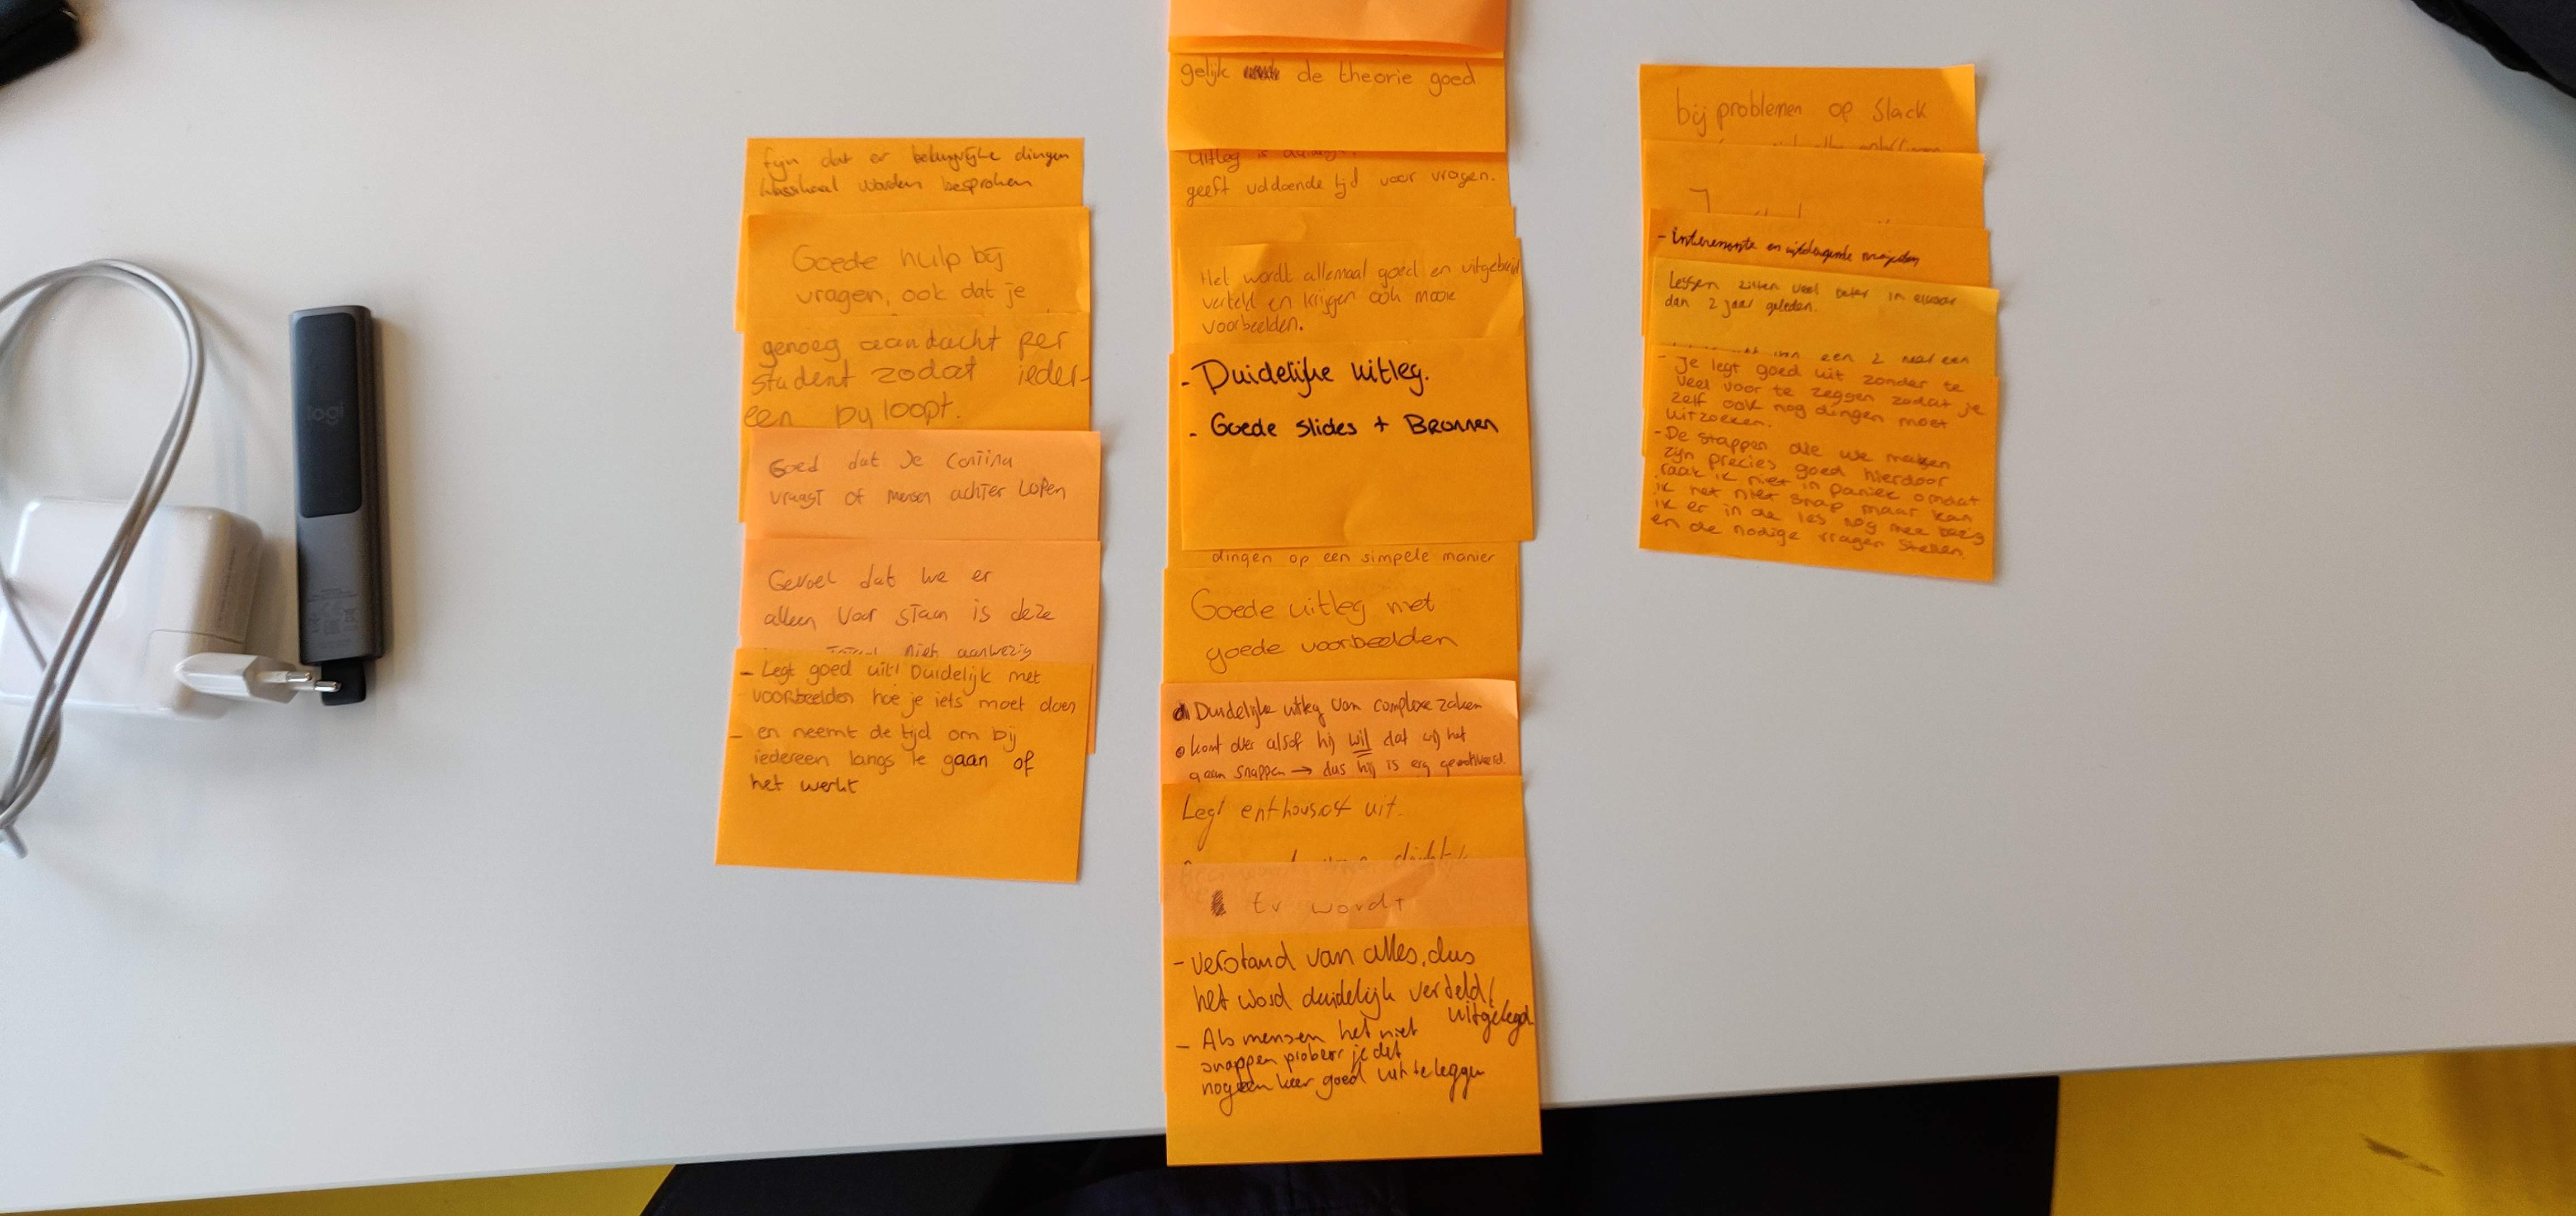 logi
fijn dat er belangrijke dingen
klassikaal worden besproken
Goede hulp bij
vragen, ook dat je
genoeg aandacht per
student zodat ieder-
een by loopt.
Goed dat je continu
vraagt of mensen achter lopen
Gevoel dat we er
alleen voor staan is deze
niet aanwezig
- Legt goed uit! Duidelijk met
voorbeelden hoe je iets moet doen
- en neemt de tijd om bij
iedereen langs te gaan of
het werkt
gelijk de theorie goed
uitleg is
geeft voldoende tijd voor vragen.
Het wordt allemaal goed en uitgebreid
verteld en krijgen ook mooie
voorbeelden.
- Duidelijke uitleg.
- Goede slides + Bronnen
dingen op een simpele manier
Goede uitleg met
goede voorbeelden
Duidelijke uitleg van complexe zaken
o komt over alsof hij wil dat wij het
gaan snappen → dus hij is erg gemotiveerd.
Legt enthousiast uit.
Er wordt
- verstand van alles, dus
het word duidelijk verteld/
uitgelegd
- Als mensen het niet
snappen probeer je det
nog een keer goed uit te leggen
bij problemen op Slack
- interessante en uitdagende
Lessen zitten veel beter in elkaar
dan 2 jaar geleden.
een 2 naar een
- Je legt goed uit zonder te
veel voor te zeggen zodat je
zelf ook nog dingen moet
uitzoeken.
- De stappen die we maken
zijn precies goed hierdoor
raak ik niet in paniek omdat
ik het niet snap maar kan
ik er in de les nog mee bezig
en de nodige vragen stellen